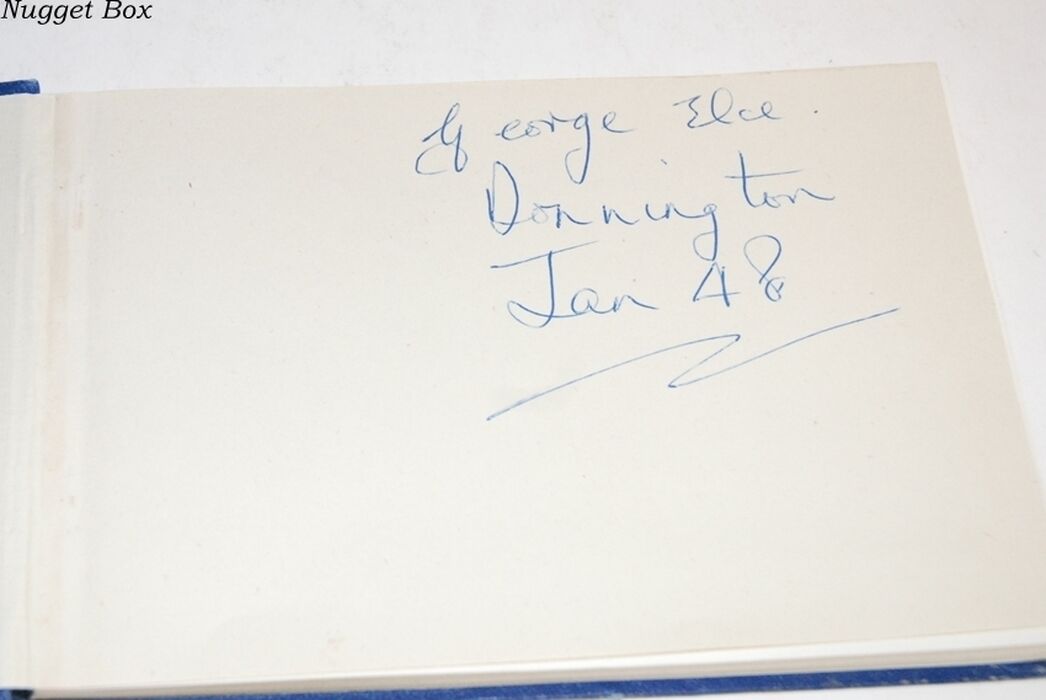 Nugget Box
George Elce.
Donnington
Jan 48